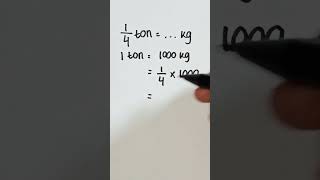 1/4 ton = ... kg
1 ton = 1000 kg
= 1/4 × 1000
=